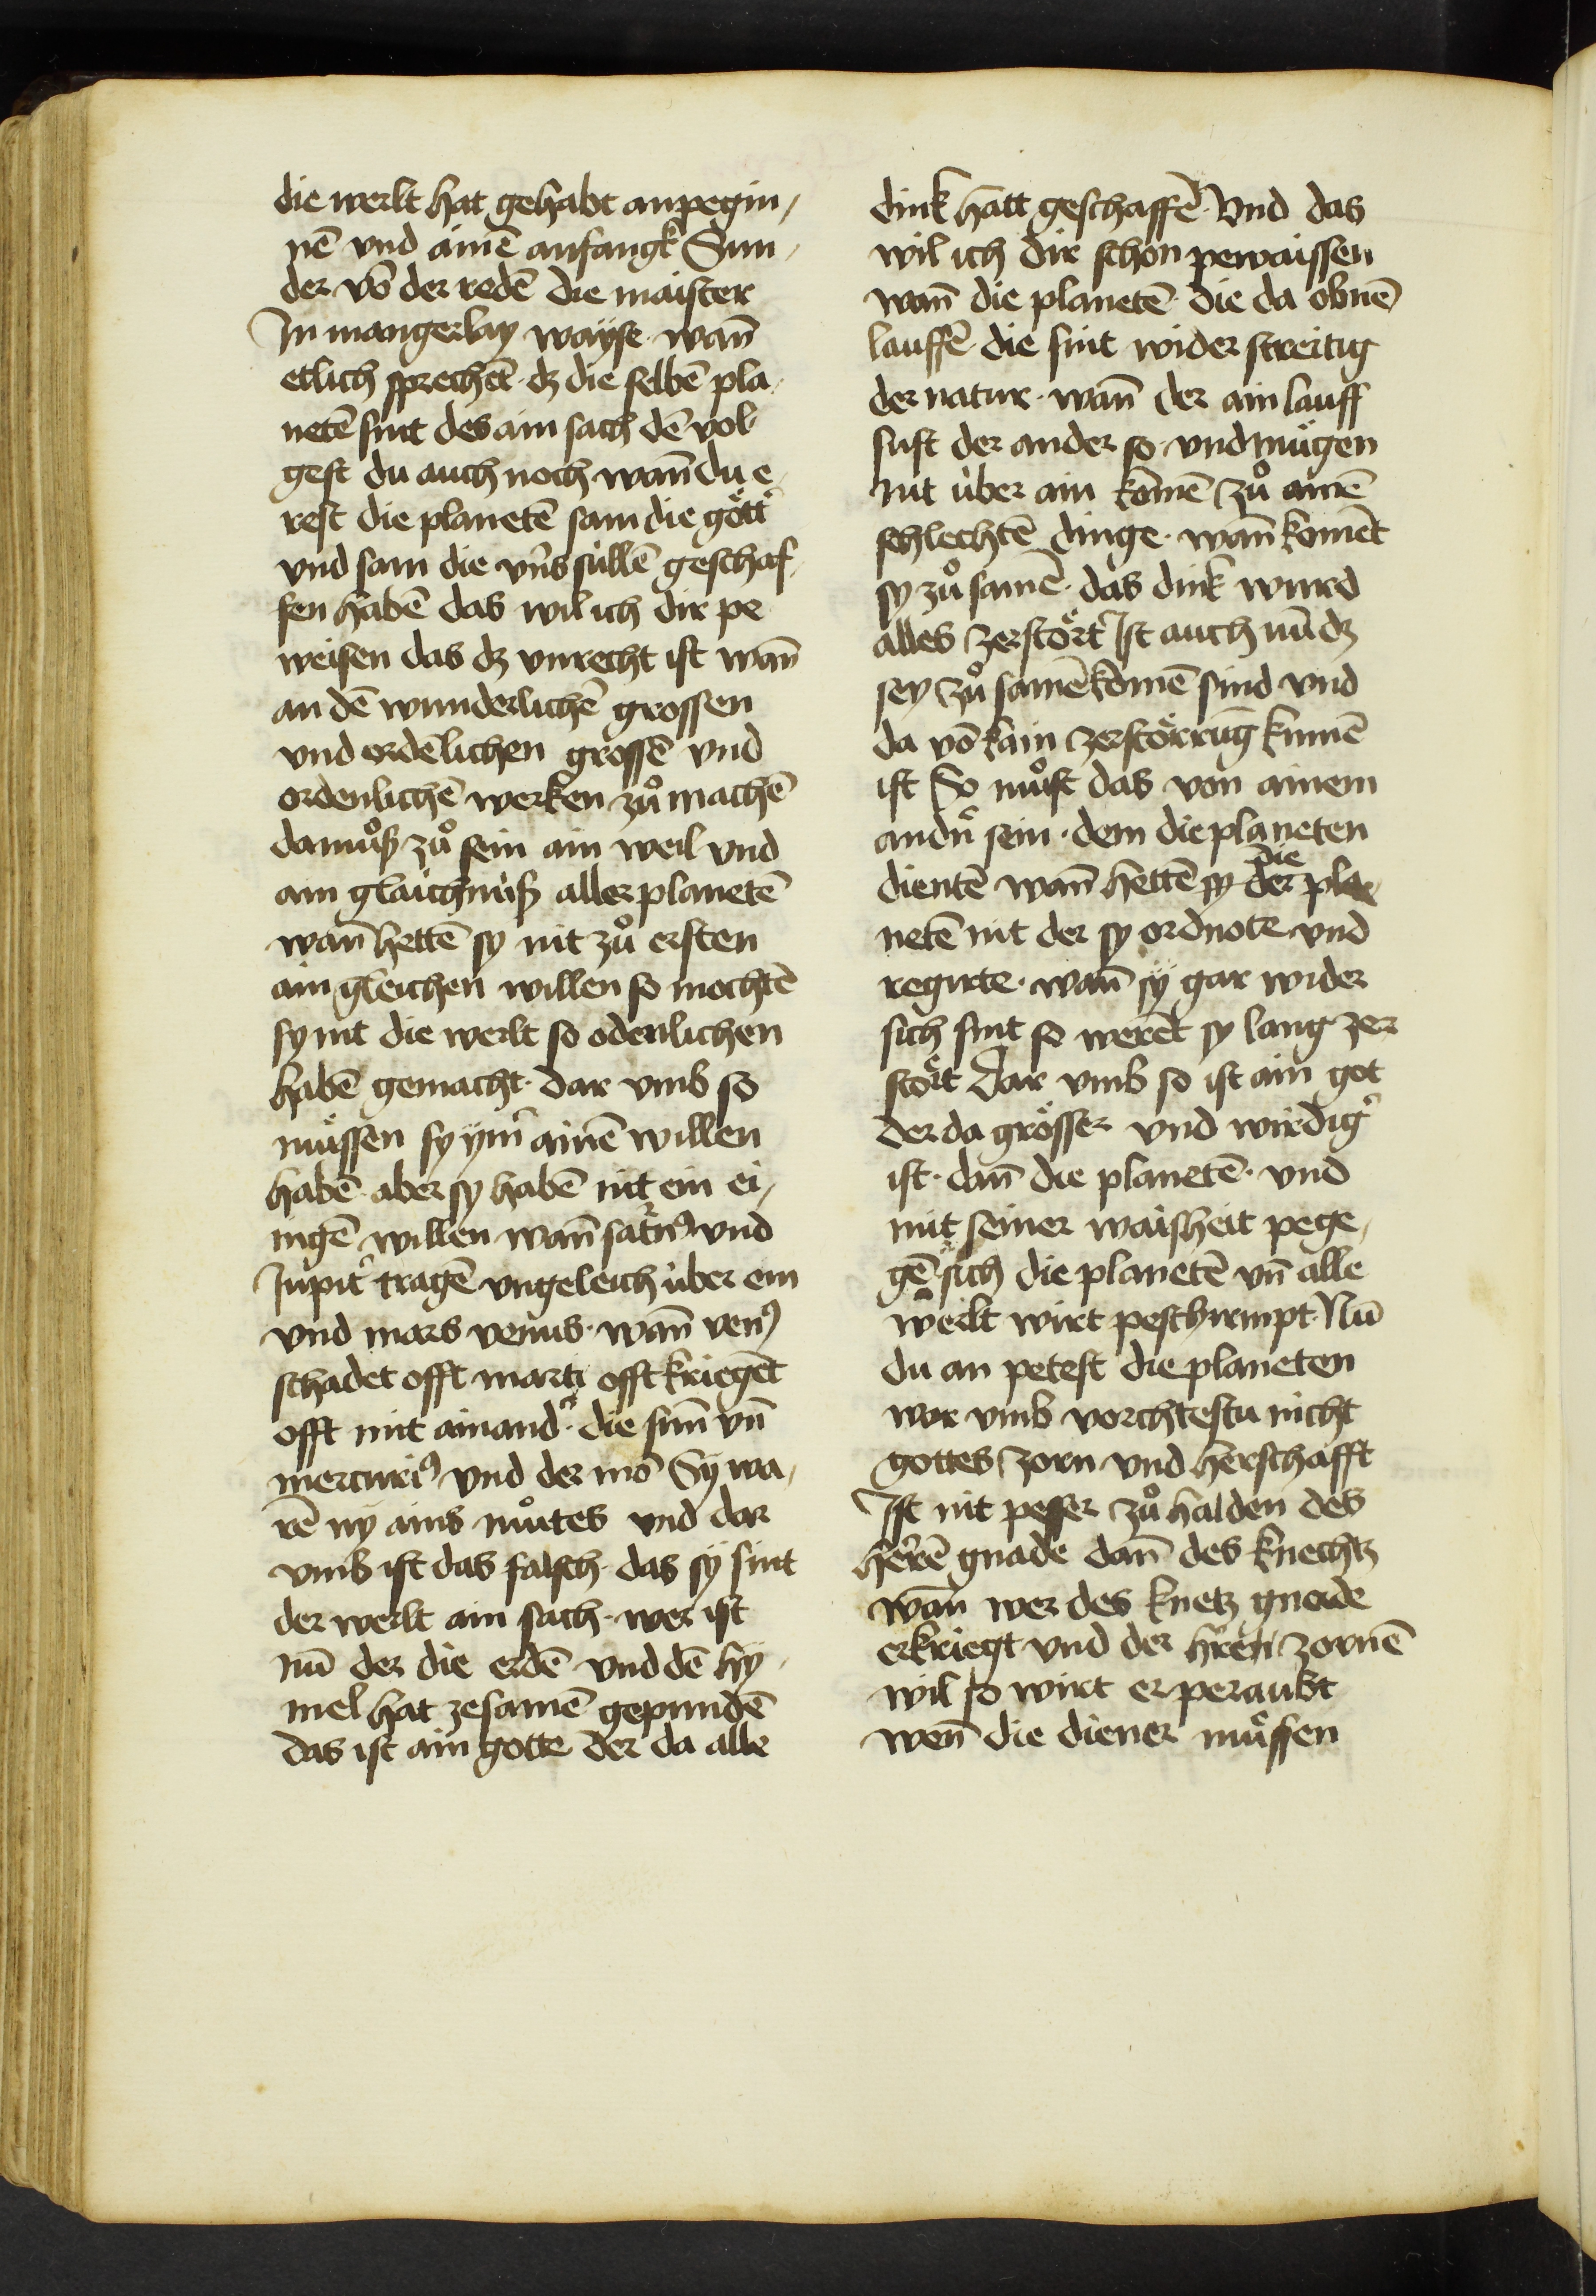 die werlt hat gehabt anpegin¬
nē vnd ainē anfangk Sun¬
der vō der redē die maister
In mangerlay wayse · wañ
etlich sprechēt · dz die selbē pla¬
netē sint des ain sach dē vol
gest du auch noch wañ du e¬
rest die planetē sam die gött᾽
vnd sam die vn̄s süllē geschaf¬
fen habē das wil ich dir pe
weisen das dz vnrecht ist wañ
an dē wunderlichē grossen
vnd ordēlichen grossē vnd
ordenlichē werken zů machē
da můß zů sein ain weil vnd
ain glaichnüß aller planetē
wañ hettē sy nit zů ersten
ain gleichen willen so mochtē
sy nit die werlt so odenlichen
habē gemacht · dar vmb so
müssen sy ÿm̄ ainē willen
habē · aber sy habē nit ein ei¬
nigē willen wañ saturn9 vnd
Jupit᾽ tragē vngeleich über ein
vnd mars venus · wañ ven9
schadet offt marti offt kriegēt
offt mit ainand᾽ · die sun̄ vn̄
mercuri9 vnd der mō Sÿ wa¬
rē nÿ ains můtes vnd dar
vmb ist das falsch · das sÿ sint
der werlt ain sach · wer ist
nū der die erdē vnd dē hÿ¬
mel hat zesamē gepundē
das ist ain gotte der da alle
dink hatt geschaffē · Vnd das
wil ich dir schon pewaissen
wañ die planetē · die da obnē
lauffē die sint wider streitig
der natur · wañ der ain lauff
sust der ander so · vnd mügen
nit über ain komē zů ainē
schlechtē dinge · wañ komēt
sy zů samē · das dink wurd
alles zerstört Ist auch nū dz
sey zů samē komē sind vnd
da vō kain zerstörrūg kumē
ist So můst das von ainem
andn̄ sein · dem die planeten
dientē wañ hettē sy die der pla
netē nit der sy ordnote vnd
regirte · wañ sÿ gar wider
sich sint so werēt sy lang zer
stört Dar vmb so ist ain got
der da grösser vnd wirdig᾽
ist · dañ die planetē · vnd
mit seiner waisheit pege¬
gē sich die planetē vn̄ alle
werlt wirt peschirmpt · Nū
du an petest die planeten
war vmb vorchtestu nicht
gottes zorn vnd herschafft
Ist nit pesser zů halden des
herrē gnade dañ des knechtz
wañ wer des knetz gnade
erkriegt vnd der h᾽ren zornē
wil so wirt er peraubt
wen̄ die diener müssen